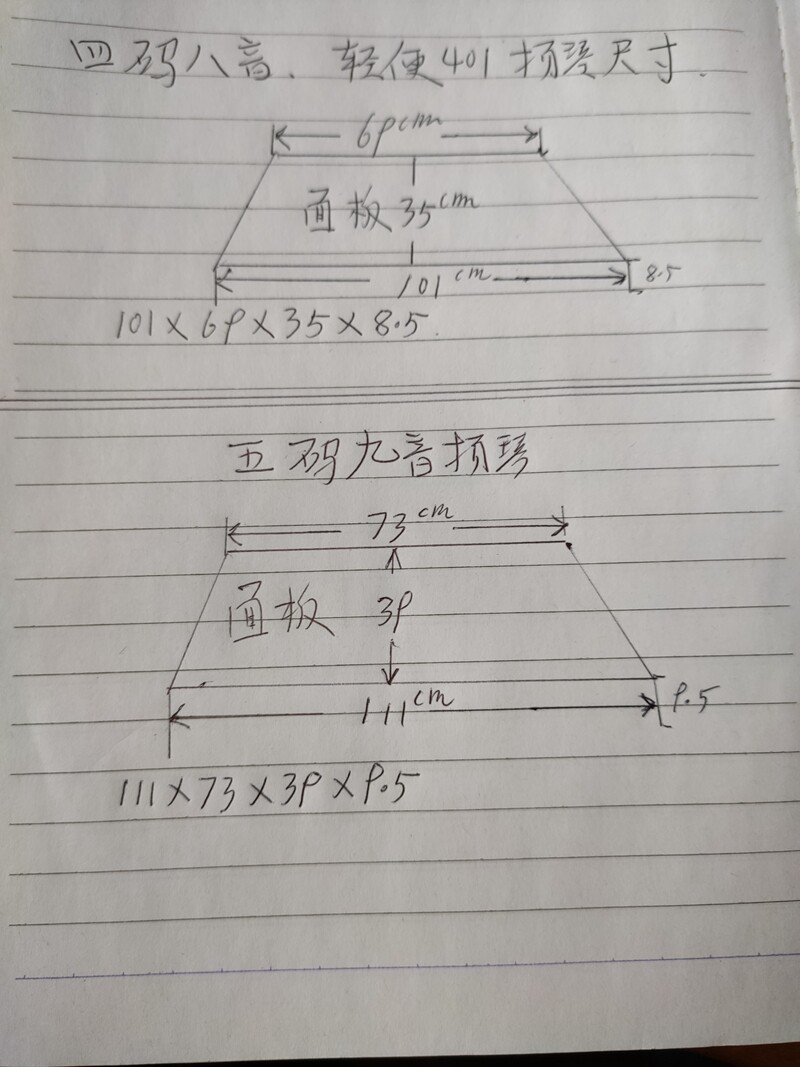 四码八音、轻便401扬琴尺寸.
69cm
面板35cm
101cm
8.5
101×69×35×8.5.
五码九音扬琴
73cm
面板 39
111cm
9.5
111×73×39×9.5